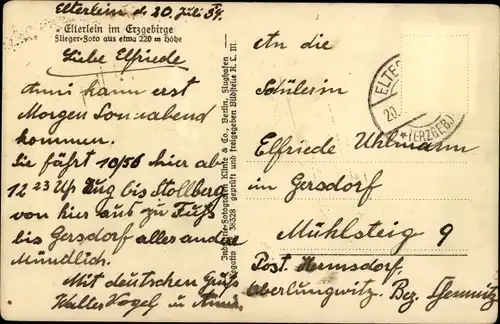 Elterlein d. 20. Juli 34.
Elterlein im Erzgebirge
Flieger-Foto aus etwa 220 m Höhe
Liebe Elfriede
Anni kann erst
Morgen Sonnabend
kommen.
Sie fährt 10/56 hier ab
12 23 Uh Zug bis Stollberg
von hier aus zu Fuß
bis Gersdorf alles andere
Mündlich.
Mit deutschen Gruß
Walter Vogel u Anni.
Industrie-Fotografen Klinke & Co., Berlin, Flughafen
38528 geprüft und freigegeben Bildstelle R. L. M.
An die
Schülerin
Elfriede Uhlmann
in Gersdorf
Mühlsteig 9
Post. Hermsdorf,
Oberlungwitz. Bez. Chemnitz
ELTER
20.
*(ERZGEB.)